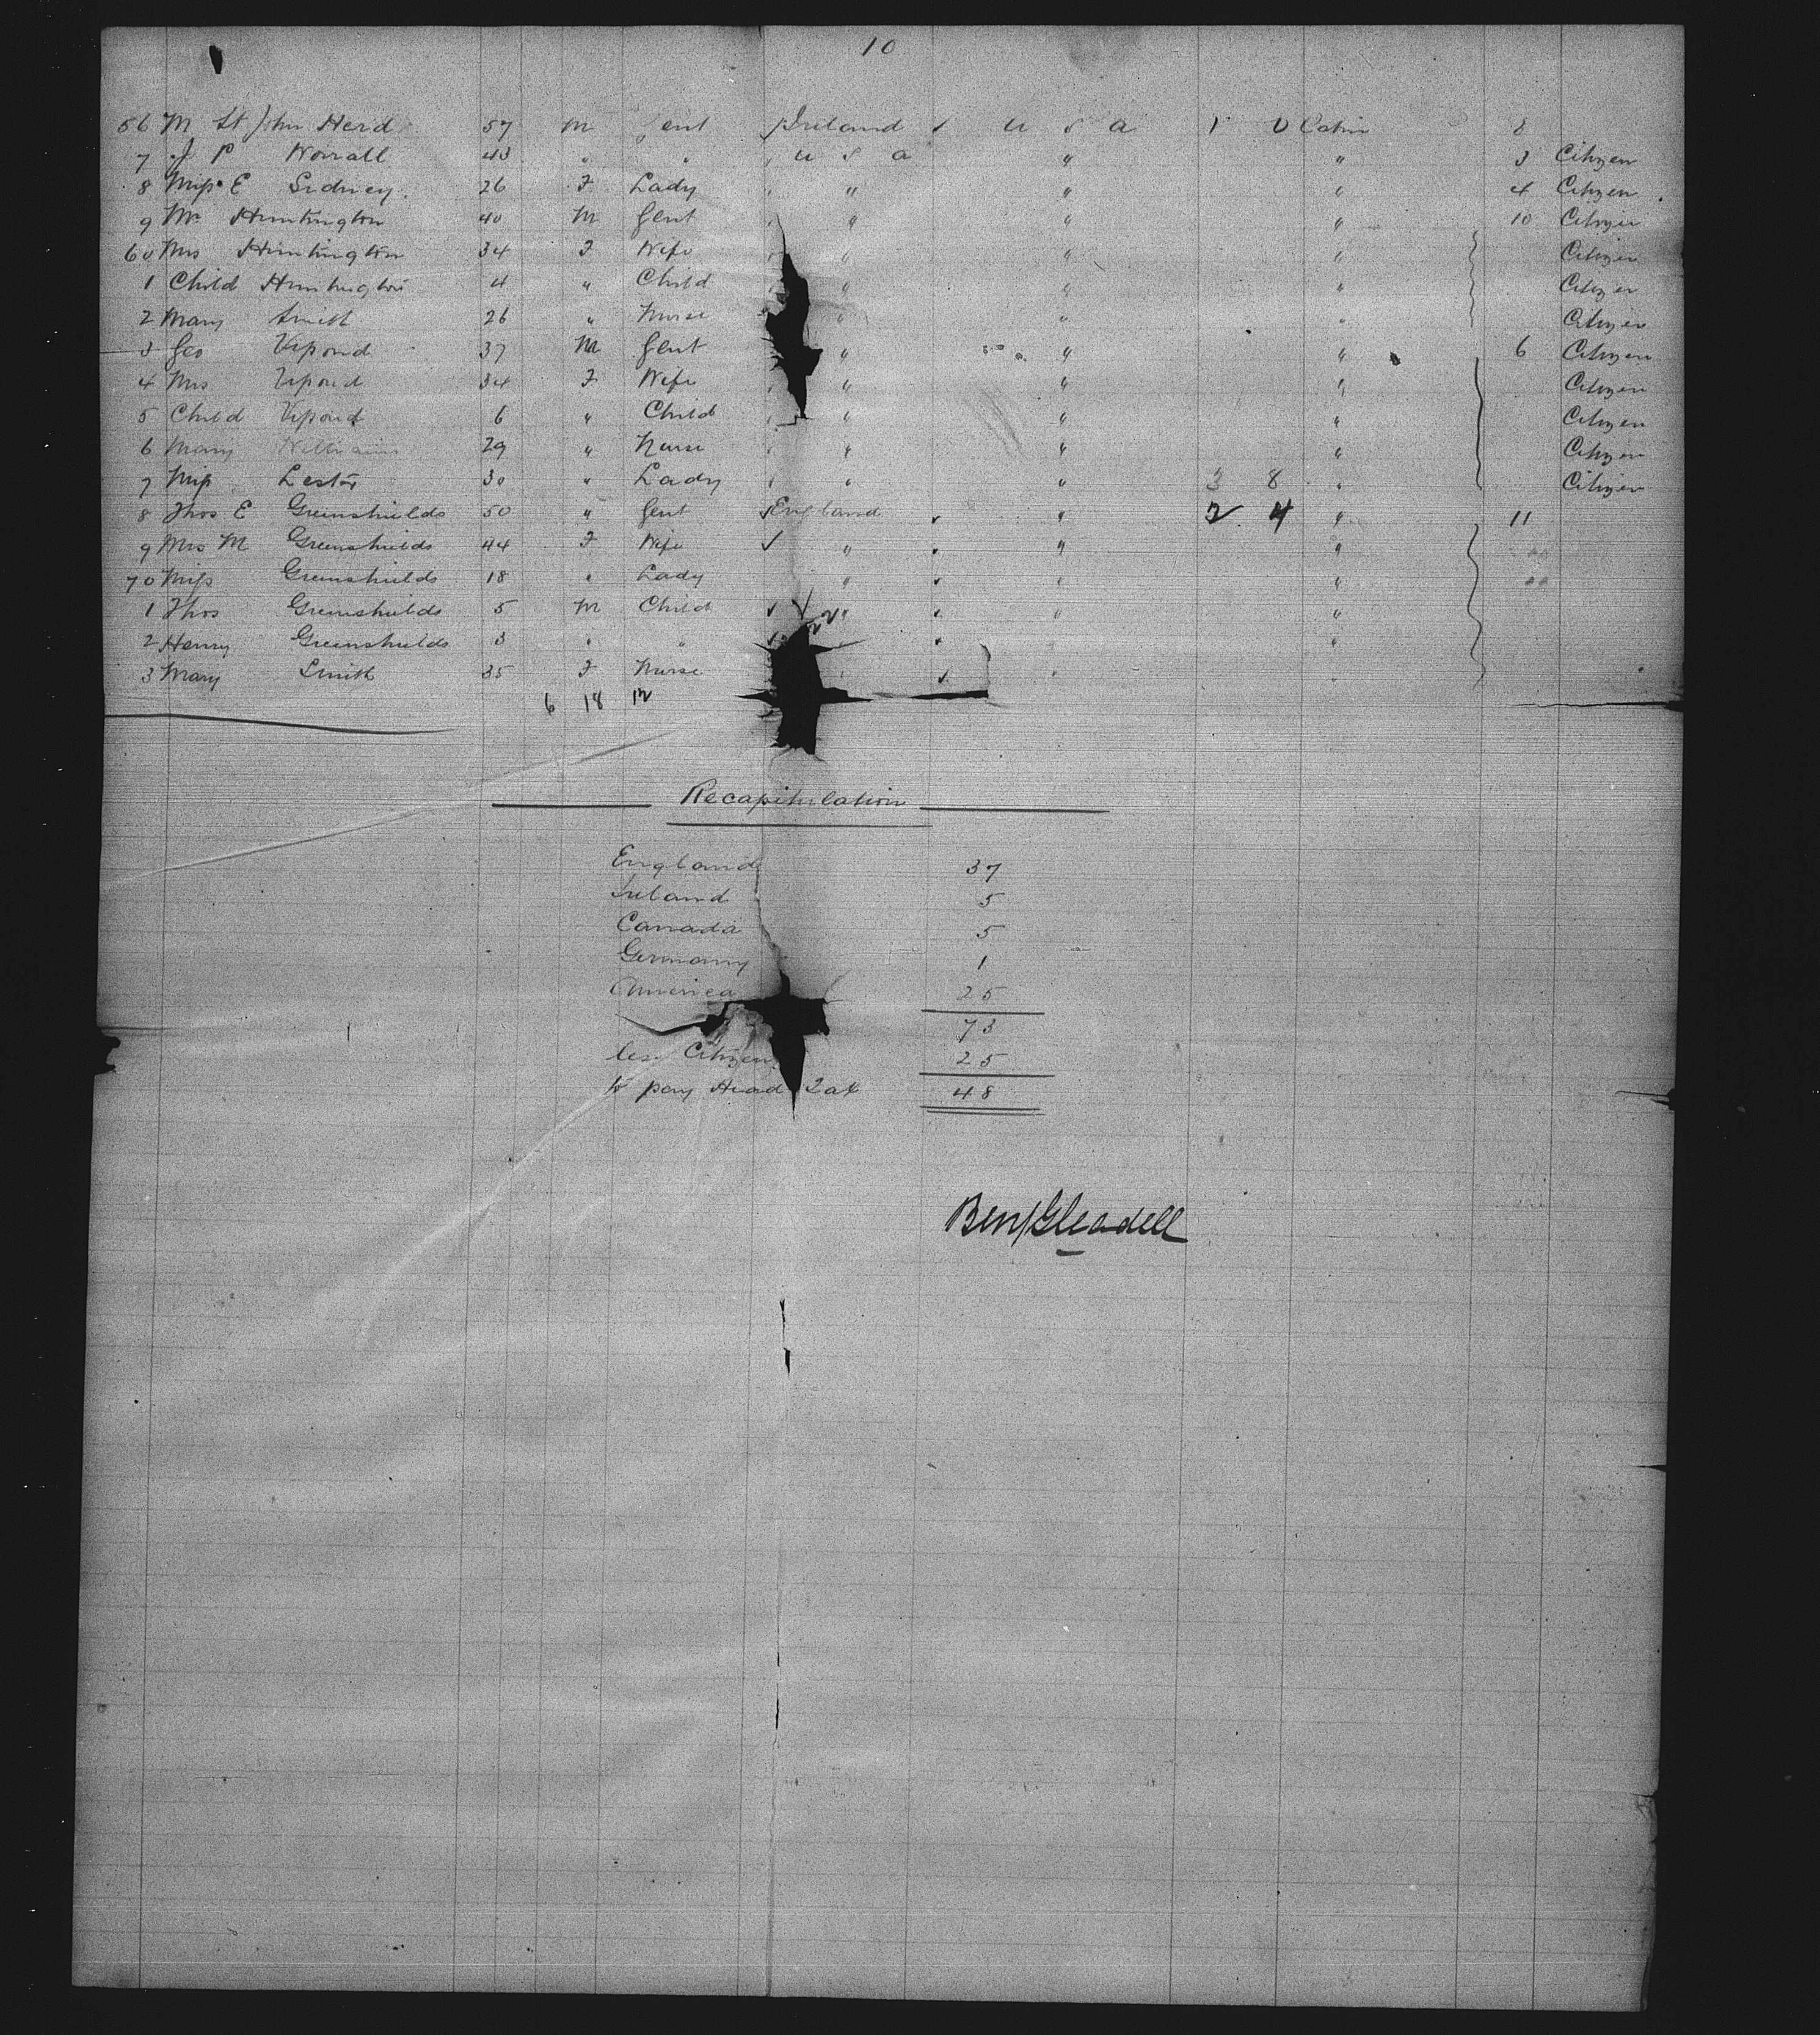 10
56 M St John Herd 57 M Gent Ireland ✓ U S A 1 0 Cabin 8
7 J P Worrall 43 " " U S A " " 3 Citizen
8 Miss E Sidney 26 F Lady " " " 4 Citizen
9 Mr Huntington 40 M Gent " " " 10 Citizen
60 Mrs Huntington 34 F Wife " " " Citizen
1 Child Huntington 4 " Child " " " Citizen
2 Mary Smith 26 " Nurse " " " Citizen
3 Geo Vipond 37 M Gent " " " 6 Citizen
4 Mrs Vipond 34 F Wife " " " Citizen
5 Child Vipond 6 " Child " " " Citizen
6 Mary Williams 29 " Nurse " " " Citizen
7 Miss Lester 30 " Lady " " 3 8 " Citizen
8 Thos E Greenshields 50 " Gent England ✓ " 2 4 " 11
9 Mrs M Greenshields 44 F Wife ✓ " ✓ " "
70 Miss Greenshields 18 " Lady " ✓ " "
1 Thos Greenshields 5 M Child ✓ " ✓ " "
2 Henry Greenshields 3 " " ✓ " ✓ "
3 Mary Smith 35 F Nurse " ✓ " "
6 18 12
Recapitulation
England 37
Ireland 5
Canada 5
Germany 1
America 25
73
less Citizens 25
to pay Head Tax 48
Benj Gleadell